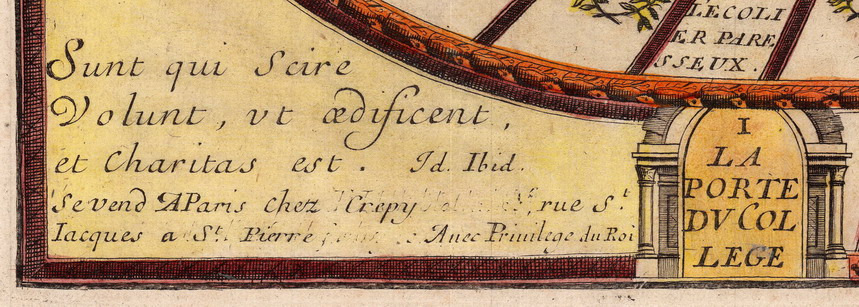 Sunt qui Scire
Volunt, vt ædificent,
et Charitas est. Id. Ibid.
Se vend AParis chez Crepy rue St.
Iacques a St. Pierre Auec Priuilege du Roi
LECOLI
ER PARE
SSEUX.
I
LA
PORTE
DV COL
LEGE